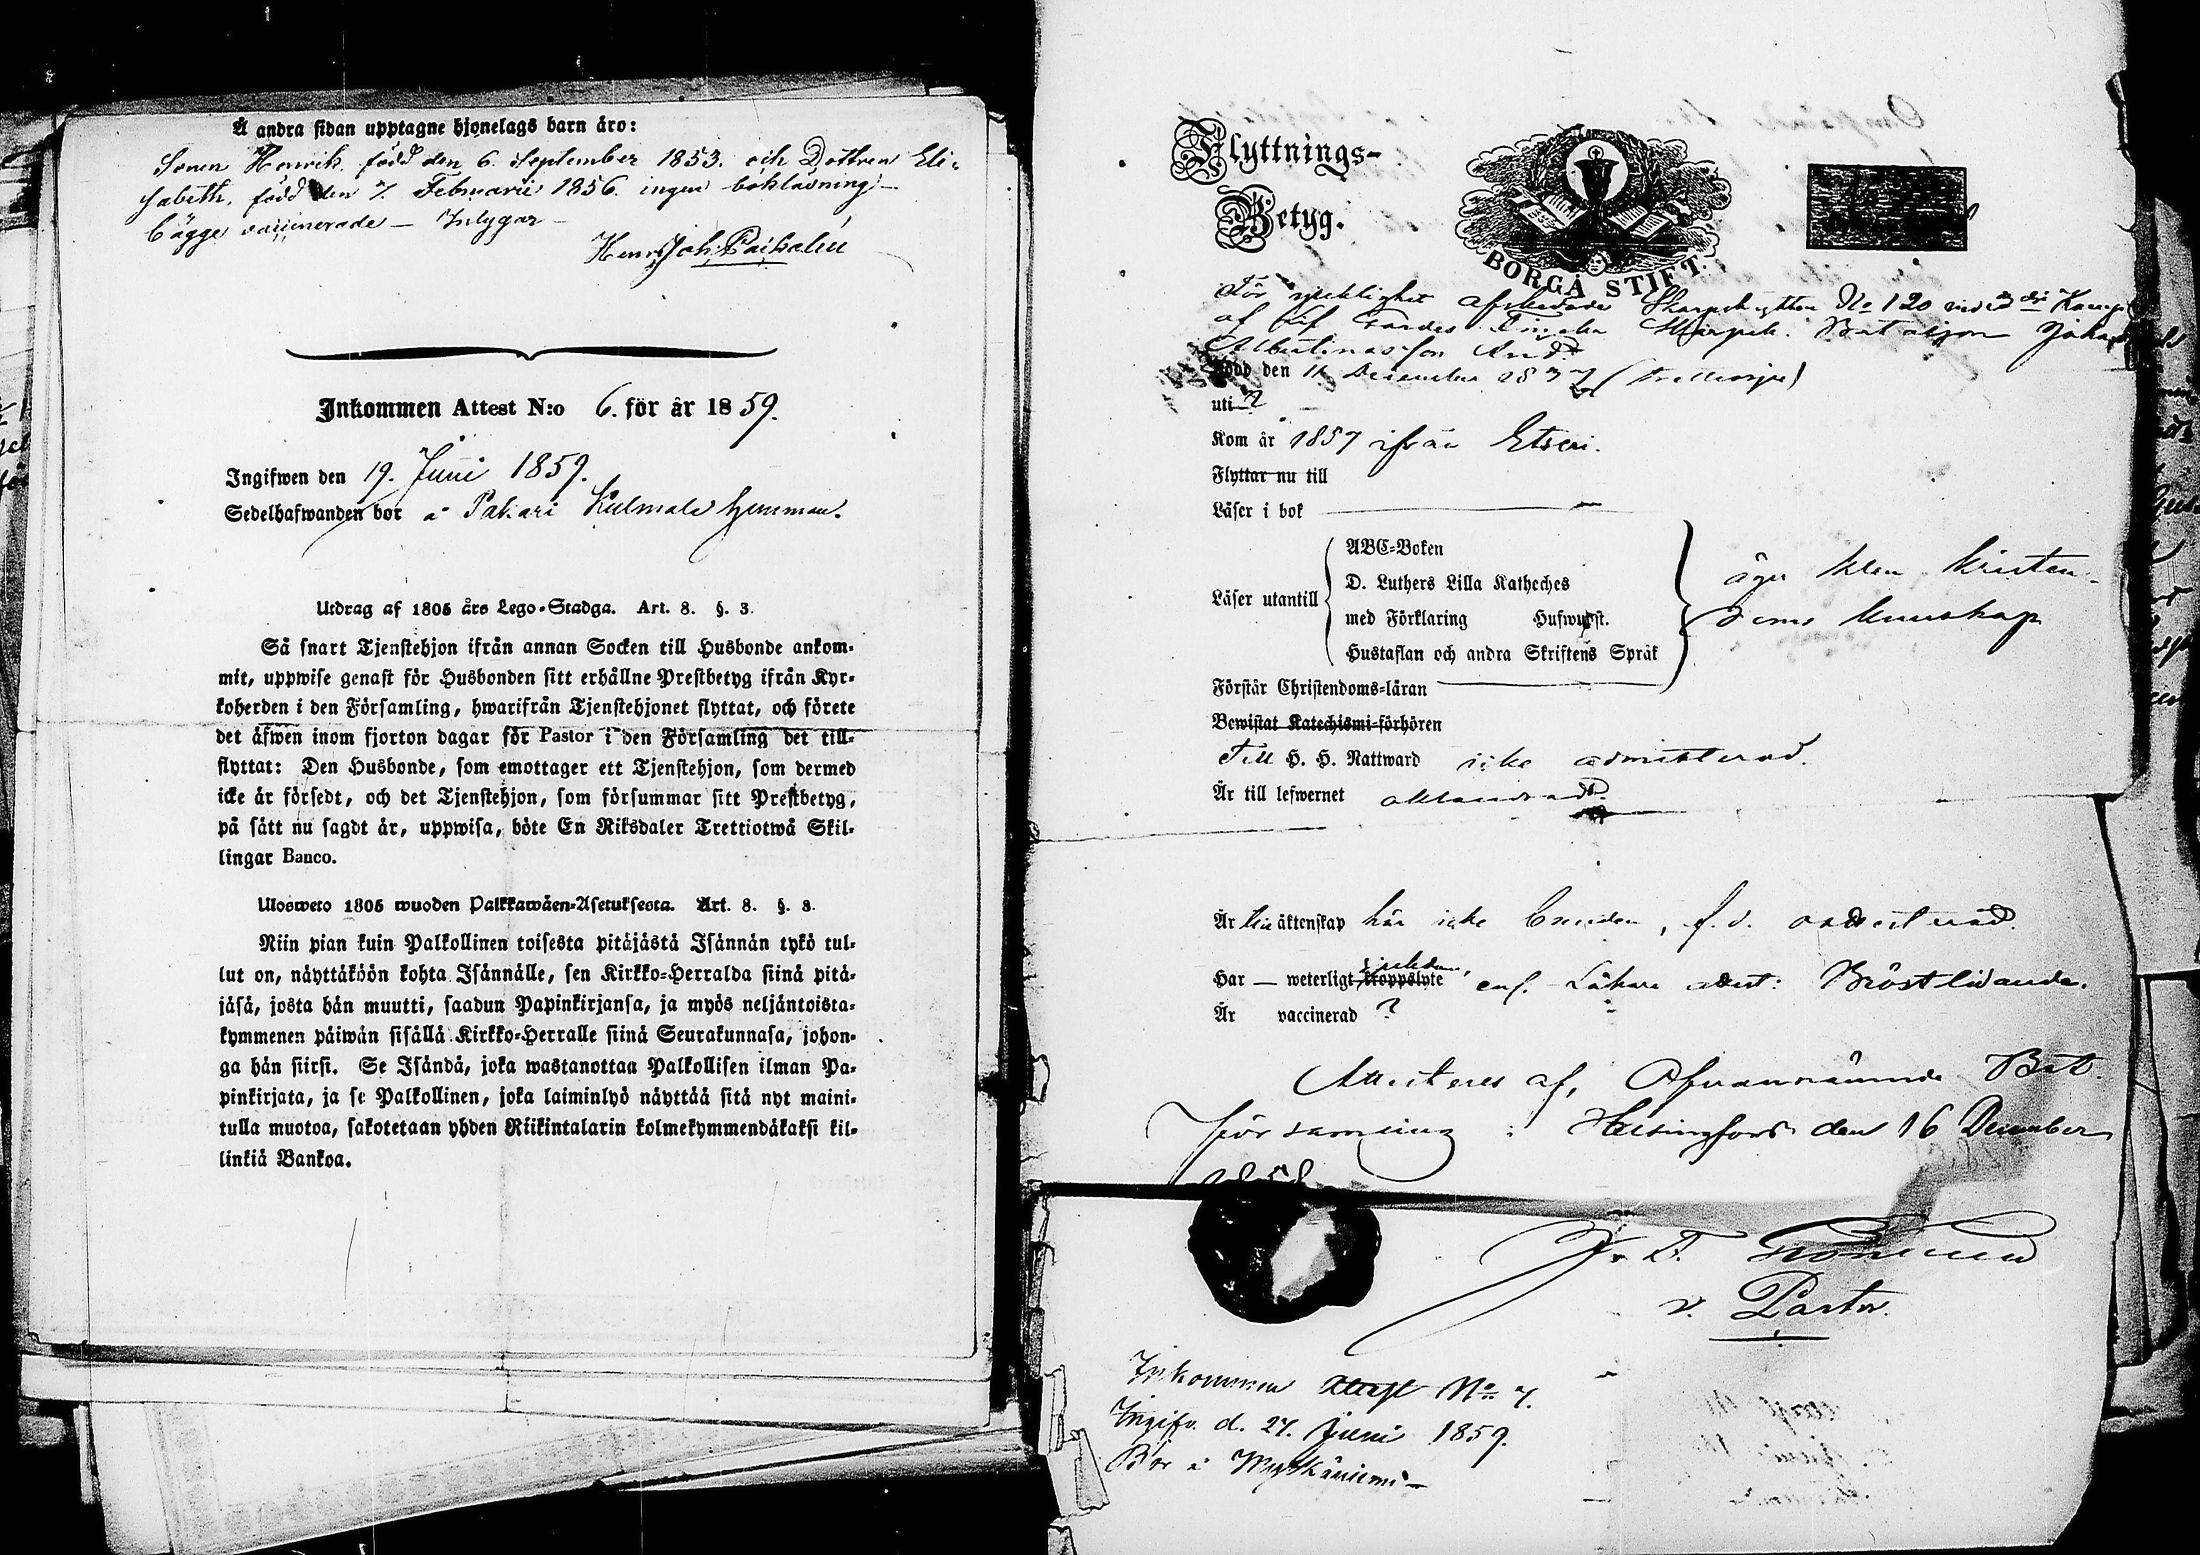 Å andra sidan upptagne hjonelags barn äro:
Sonen Henrik, född den 6. September 1853. och Dottren Eli-
sabeth, född den 7. Februarii 1856. ingen boklärning
bägge vaccinerade — Intygar
Henr Joh: Paikalén
Inkommen Attest N:o 6. för år 1859.
Ingifwen den 19. Juni 1859.
Sedelhafwanden bor å Pakari Kulmala hemman.
Utdrag af 1805 års Lego-Stadga. Art. 8. §. 3.
Så snart Tjenstehjon ifrån annan Socken till Husbonde ankom-
mit, uppwise genast för Husbonden sitt erhållne Prestbetyg ifrån Kyr-
koherden i den Församling, hwarifrån Tjenstehjonet flyttat, och förete
det äfwen inom fjorton dagar för Pastor i den Församling det till-
flyttat: Den Husbonde, som emottager ett Tjenstehjon, som dermed
icke är försedt, och det Tjenstehjon, som försummar sitt Prestbetyg,
på sätt nu sagdt är, uppwisa, böte En Riksdaler Trettiotwå Skil-
lingar Banco.
Ulosweto 1805 wuoden Palkkawäen-Asetuksesta. Art. 8. §. 3.
Niin pian kuin Palkollinen toisesta pitäjästä Isännän tykö tul-
lut on, näyttäköön kohta Isännälle, sen Kirkko-Herralda siinä pitä-
jäsä, josta hän muutti, saadun Papinkirjansa, ja myös neljäntoista-
kymmenen päiwän sisällä Kirkko-Herralle siinä Seurakunnasa, johon-
ga hän siirsi. Se Isändä, joka wastanottaa Palkollisen ilman Pa-
pinkirjata, ja se Palkollinen, joka laiminlyö näyttää sitä nyt maini-
tulla muotoa, sakotetaan yhden Riikintalarin kolmekymmendäkaksi kil-
linkiä Bankoa.
Flyttnings-
Betyg.
BORGÅ STIFT.
För sjuklighet afskedade Skarpskytten No 120 vid Komp
af Lif Gardes Finska Skarpsk. Bataljon Johan
Albertinasson And
Född den 11 December 1837 (
uti ?
Kom år 1857 ifrån Etseri.
Flyttar nu till
Läser i bok
Läser utantill
ABC-Boken
D. Luthers Lilla Katheches
med Förklaring Hufwudst.
Hustaflan och andra Skriftens Språk
äger klen Kristen-
doms kunskap
Förstår Christendoms-läran
Bewistat Katechismi-förhören
Till H. H. Nattward icke admitterad.
Är till lefwernet oklandrad.
Är till äktenskap här icke bunden, f. d.
Har — weterligt kroppslyte enl. Läkare attest: Bröstlidande.
Är vaccinerad ?
Attesteras af, Ofvannämnde Bat.
församling i Helsingfors den 16 December
1858
v. Pastor.
Inkommen Attest No 7.
Ingifv. d. 27. Juni 1859.
Bor å